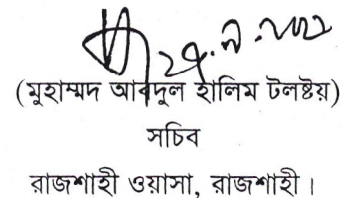 (মুহাম্মদ আবদুল হালিম টলষ্টয়)
সচিব
রাজশাহী ওয়াসা, রাজশাহী।